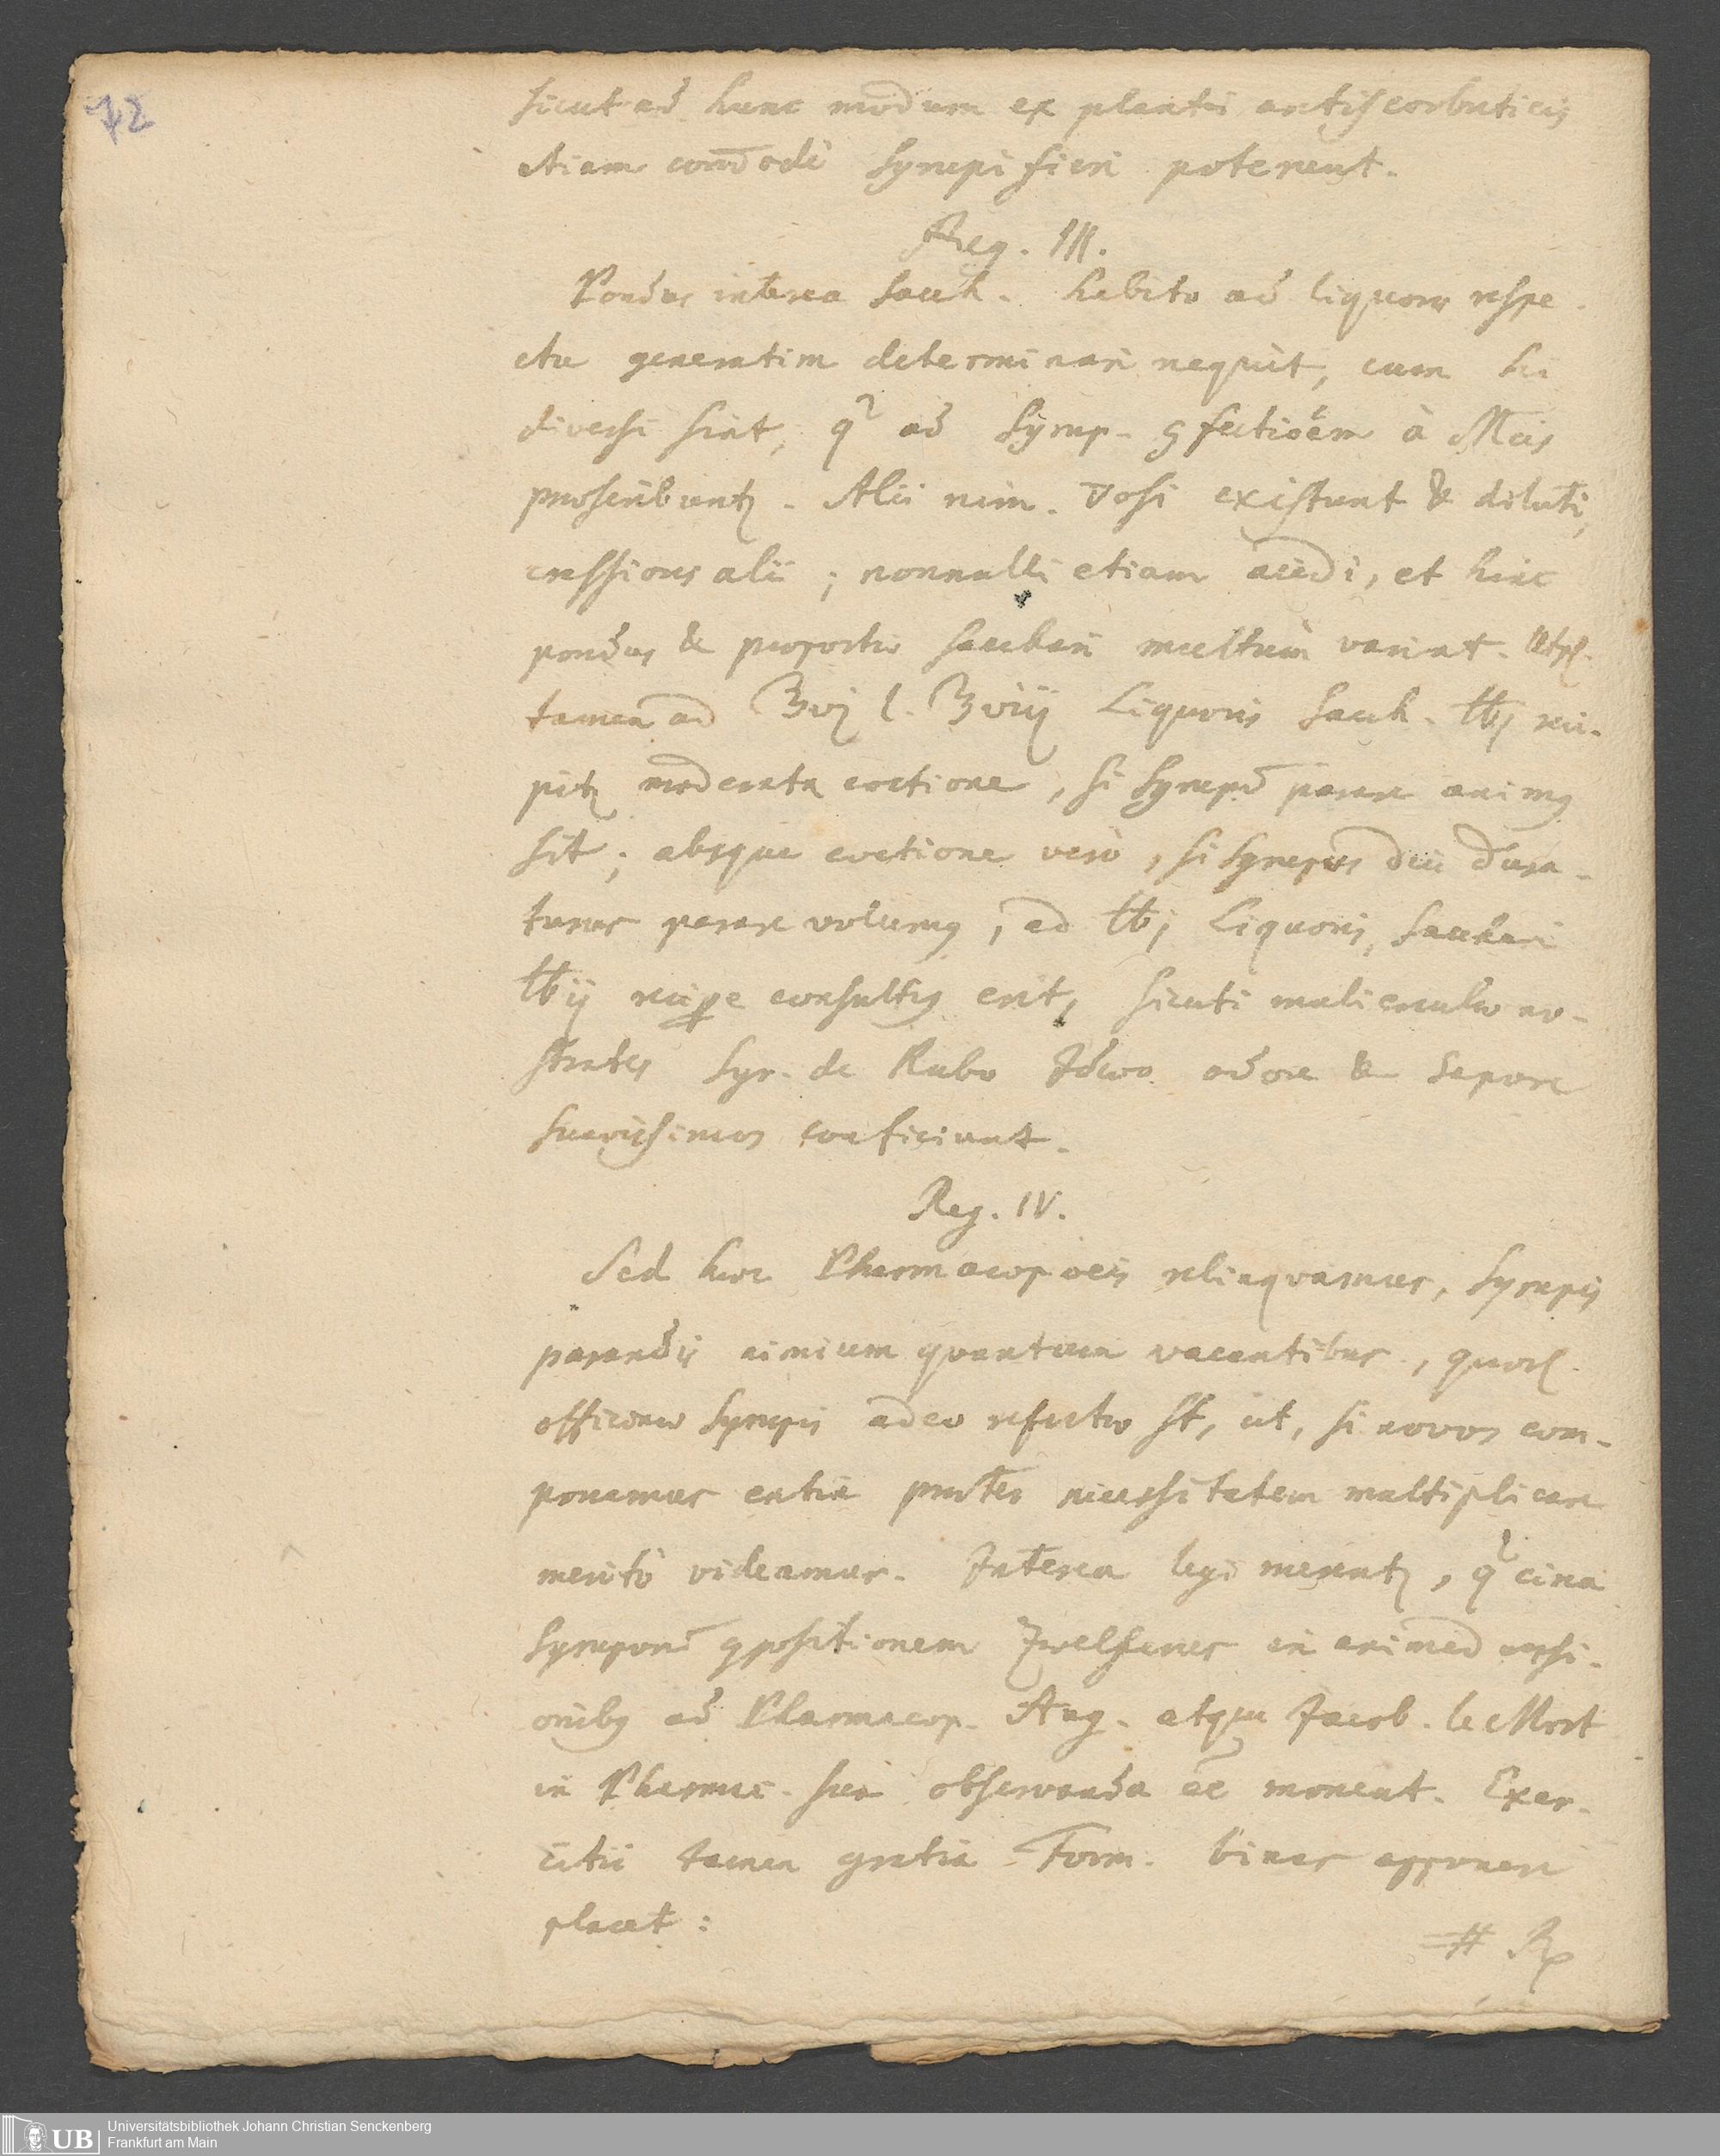 72
sicut ad hunc modum ex plantis antiscorbuticis
etiam com̄odè Syrupi fieri poterunt.
Reg. III.
Pondus interea Sacch. habito ad liquores respe-
ctu generatim determinari nequit, cum hi
diversi sint, q ad Syrup. 9fectiōem à Mcis
proscribuntʒ. Alii nim. existunt & diluti,
alii; nonnulli etiam acidi, et hinc
pondus & proportio Sacchari multum variat.
tamen ad ℥vj l. ℥viij Liquoris Sacch. ℔j reci-
pitʒ moderata coctione, si Syrupū parare anim9
sit; absque coctione verò, si Syrupos diu dura-
turos parare volum9, ad ℔j Liquoris, Sacchari
℔ij recipe consult9 erit, sicuti mulierculae no-
strates Syr. de Rubo Idaeo odore & sapore
suavissimos conficiunt.
Reg. IV.
Sed haec Pharmacopoeis relinquamus, Syrupis
parandis nimium quantum vacantibus, quorʒ
officinae Syrupis adeo refertae st, ut, si novos com-
ponamus entia praeter necessitatem multiplicare
meritò videamur. Interea legi merentʒ, q circa
Syruporū 9positionem Zwelferus in animadversi-
onib9 ad Pharmacop. Aug. atque Jacob. le Mort
in Pharmac. sua observanda ēe monent. Exer-
citii tamen gratia Form. binas apponere
placet:
# Rp
UB Universitätsbibliothek Johann Christian Senckenberg
Frankfurt am Main